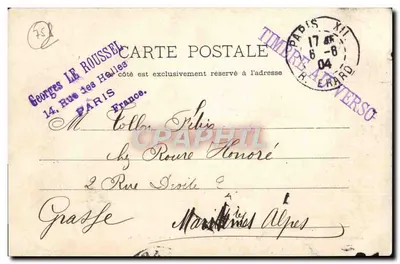 75
CARTE POSTALE
Ce côté est exclusivement réservé à l'adresse
Georges LE ROUSSEL
14, Rue des Halles
PARIS
France.
TIMBRE AU VERSO
PARIS XII
17
6-8
04
R. ERARD
M
chez Roure Honoré
2 Rue Droite
Grasse
Alpes
CPAPHIL